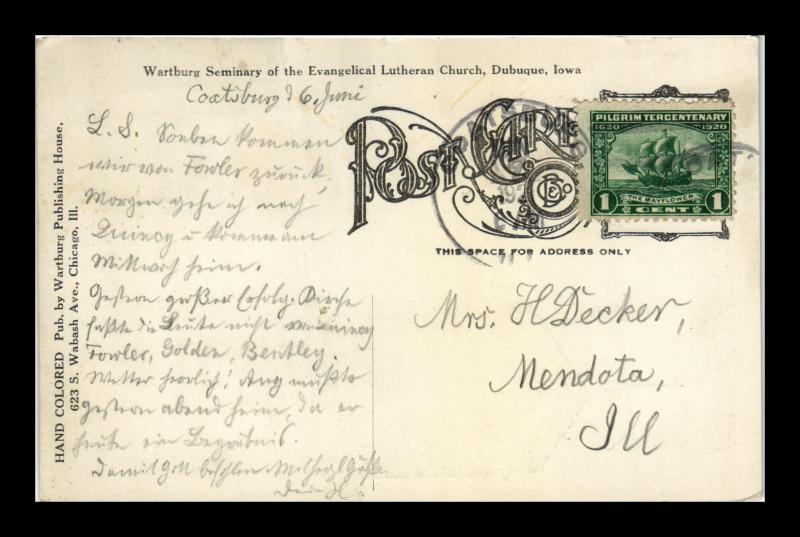 Wartburg Seminary of the Evangelical Lutheran Church, Dubuque, Iowa
Coatsburg d 6. Juni
L. S. Soeben kommen
wir von Fowler zurück.
Morgen gehe ich nach
Quincy u komme am
Mittwoch heim.
Gestern großer Erfolg. Kirche
faßte die Leute nicht von Quincy
Fowler, Golden, Bentley.
Wetter herrlich! Aug mußte
gestern abend heim, da er
heute ein Begräbnis.
Damit Gott befohlen
Dein H.
HAND COLORED Pub. by Wartburg Publishing House,
623 S. Wabash Ave., Chicago, Ill.
POST CARD
Co
PILGRIM TERCENTENARY
1620 1920
THE MAYFLOWER
1 CENTS 1
THIS SPACE FOR ADDRESS ONLY
Mrs. H Decker,
Mendota,
Ill